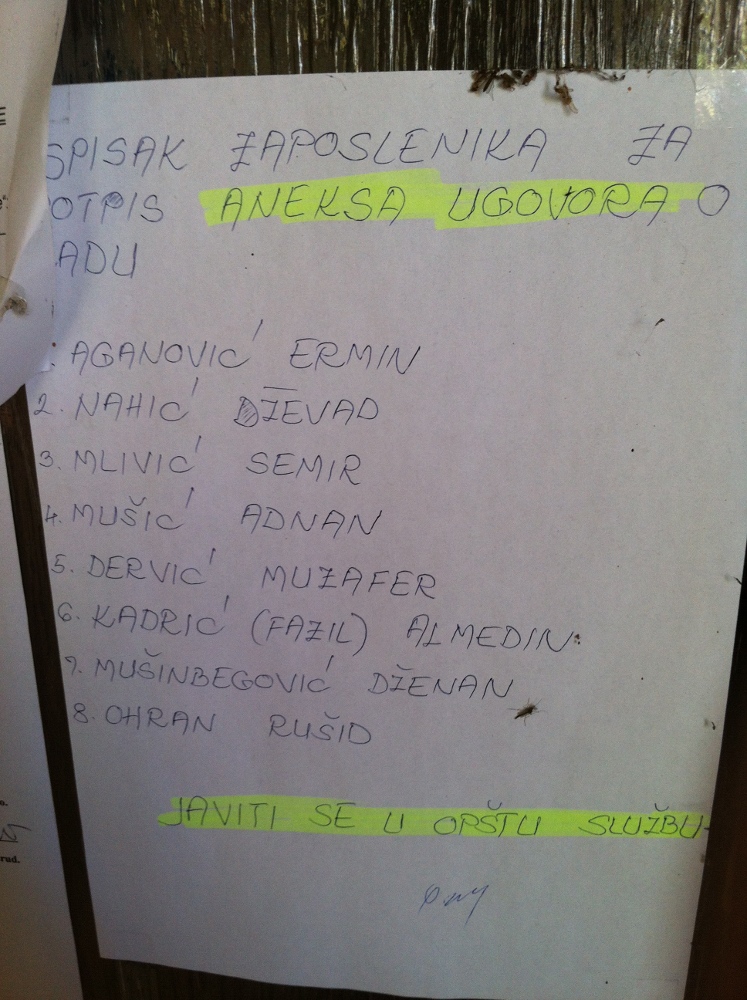 SPISAK ZAPOSLENIKA ZA
OTPIS ANEKSA UGOVORA O
ADU
AGANOVIĆ ERMIN
2. NAHIĆ DŽEVAD
3. MLIVIĆ SEMIR
4. MUŠIĆ ADNAN
5. DERVIĆ MUZAFER
6. KADRIĆ (FAZIL) ALMEDIN
7. MUŠINBEGOVIĆ DŽENAN
8. OHRAN RUŠID
JAVITI SE U OPŠTU SLUŽBU
rud.